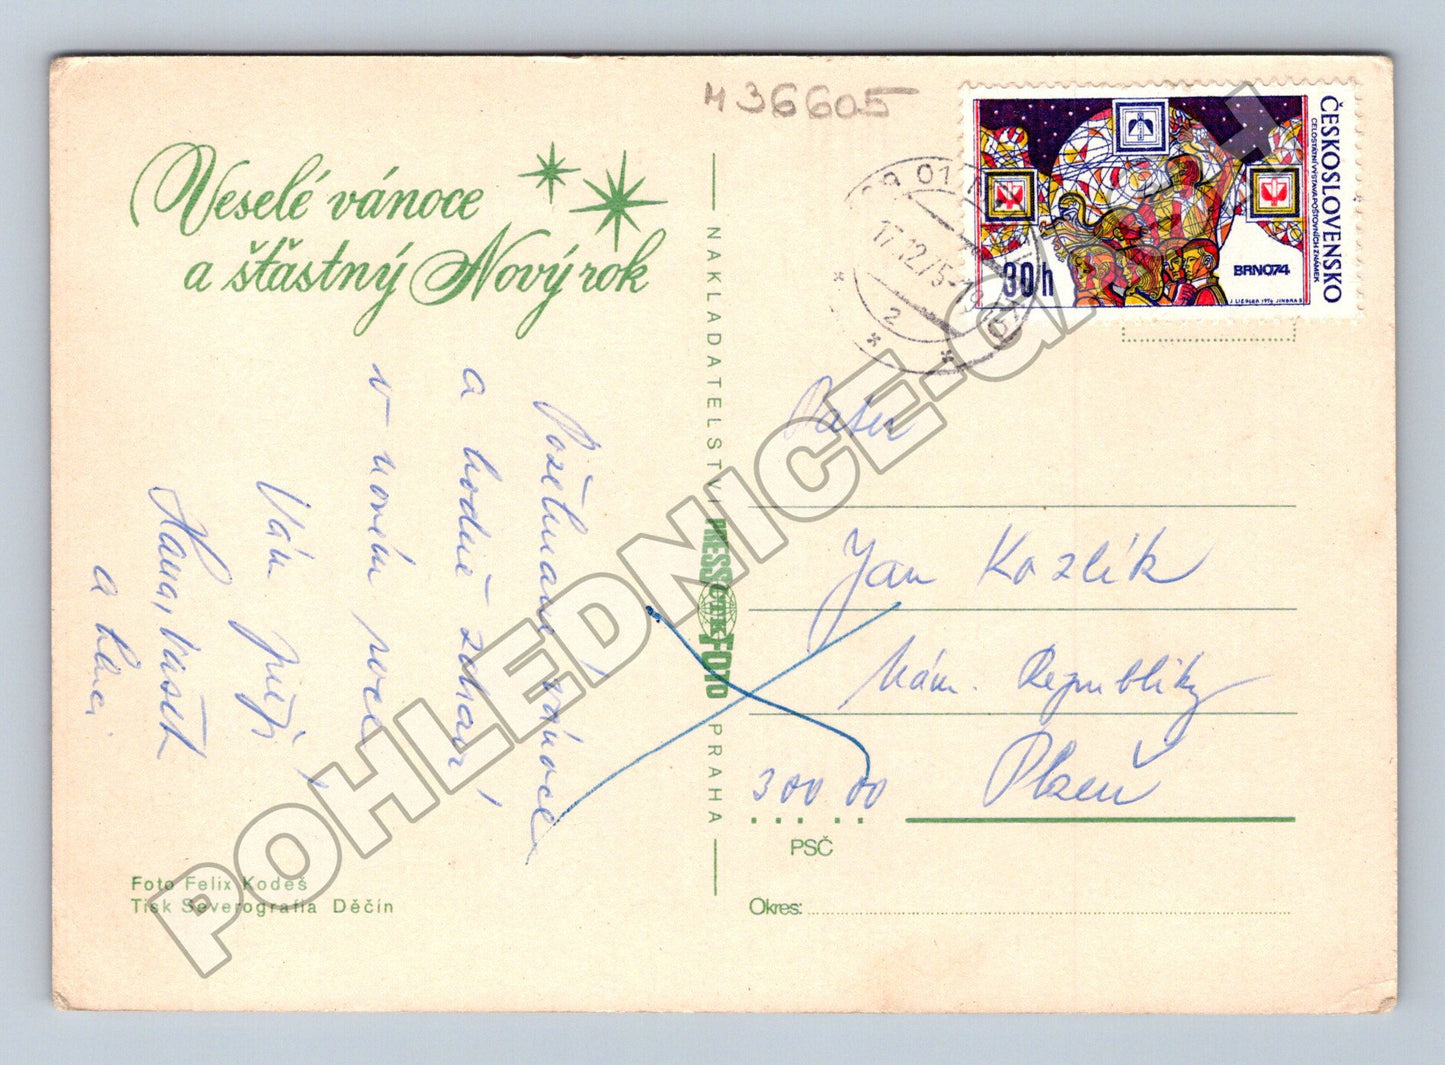 H 36605
Veselé vánoce
a šťastný Nový rok
Požehnané vánoce
a hodně zdraví
v novém roce
Vám přejí
Hana, Vašek
a
ČESKOSLOVENSKO
CELOSTÁTNÍ VÝSTAVA POŠTOVNÍCH ZNÁMEK
30h
BRNO74
J. LIESLER 1974 JINDRA S.
01
17.12.75-1
2
NAKLADATELSTVÍ
PRESSFOTO
ČTK
PRAHA
Jan Kozlík
Nám. Republiky
300 00 Plzeň
PSČ
Okres:
Foto Felix Kodeš
Tisk Severografia Děčín
POHLEDNICE-G